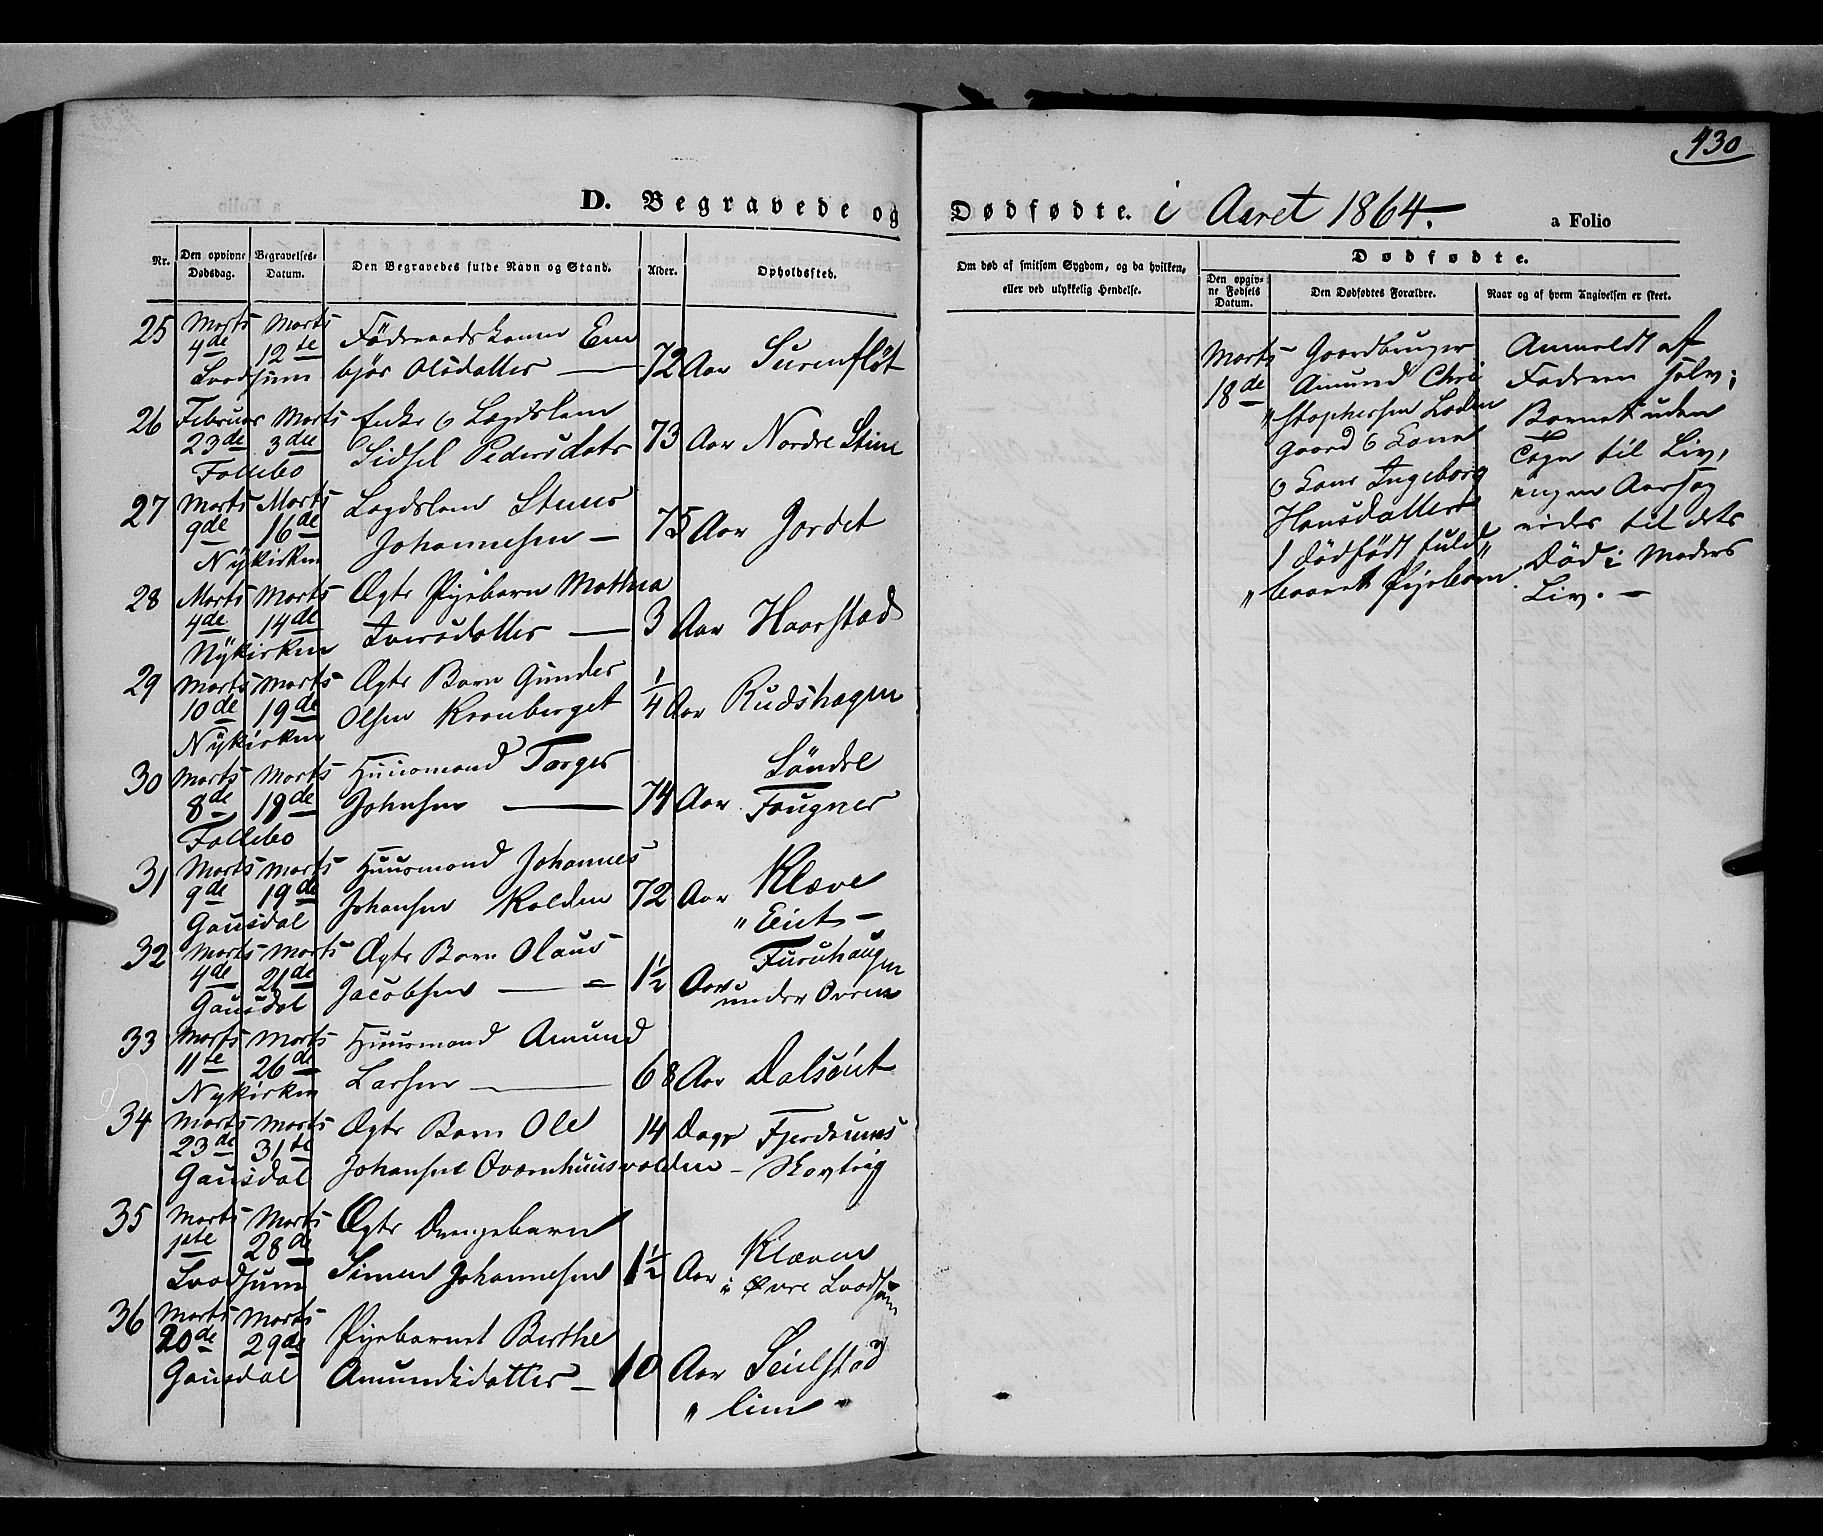 430
D. Begravede og Dødfødte. i Aaret 1864. a Folio
Nr.
Den opgivne Dødsdag.
Begravelses-Datum.
Den Begravedes fulde Navn og Stand.
Alder.
Opholdssted.
Om død af smitsom Sygdom, og da hvilken,
eller ved ulykkelig Hendelse.
Dødfødte.
Den opgiv-
ne Fødsels
Datum.
Den Dødfødtes Forældre.
Naar og af hvem Angivelsen er skeet.
25 Marts Marts Föderaadskonen Em
4de 12te bjør Olsdatter — 72 Aar Surenfløt
Svadsum
26 Februar Marts Enke o Lægdslem
23de 3die Sidsel Pedersdatr 73 Aar Nordre Stine
Follebo
27 Marts Marts Lægdslem Stener
9de 16de Johannesen — 75 Aar Jordet
Nÿkirken
28 Marts Marts Ægte Pigebarn Mathea
4de 14de Iversdatter — 3 Aar Haarstad
Nÿkirken
29 Marts Marts Ægte Barn Gunder
10de 19de Olsen Kronberget 1/4 Aar Rudshagen
Nÿkirken
30 Marts Marts Huusmand Torger Söndre
8de 19de Johnsen — 74 Aar Fougner
Follebo
31 Marts Marts Huusmand Johannes
9de 19de Johansen Kolden 72 Aar Klæve
Gausdal " Eiet —
32 Marts Marts Ægte Barn Olaus Furuhaugen
4de 21de Jacobsen — 1½ Aar under Overn
Gausdal
33 Marts Marts Huusmand Amund
11te 26de Larsen — 68 Aar Dalseiet
Nykirken
34 Marts Marts Ægte Barn Ole 14 Dage Fjerdrumes
23de 31te Johansen Qvernhuusvolden — Skovteig
Gausdal
35 Marts Marts Ægte Drengebarn
1ste 28de Simen Johannesen 1½ Aar Klæven
Svadsum i Øvre Svadsum
36 Marts Marts Pigebarnet Berthe
20de 29de Amundsdatter — 10 Aar Seielstad
Gausdal " lien
Marts
18de
Gaardbruger
Amund Chri
" stophersen Loden
gaard o Kone
Ingeborg
Hansdatters
1 dødfödt fuld"
" baaret Pigebarn.
Anmeldt af
Faderen selv;
Barnet uden
Tegn til Liv,
ingen Aarsag
vides til dets
Død i Moders
Liv. —